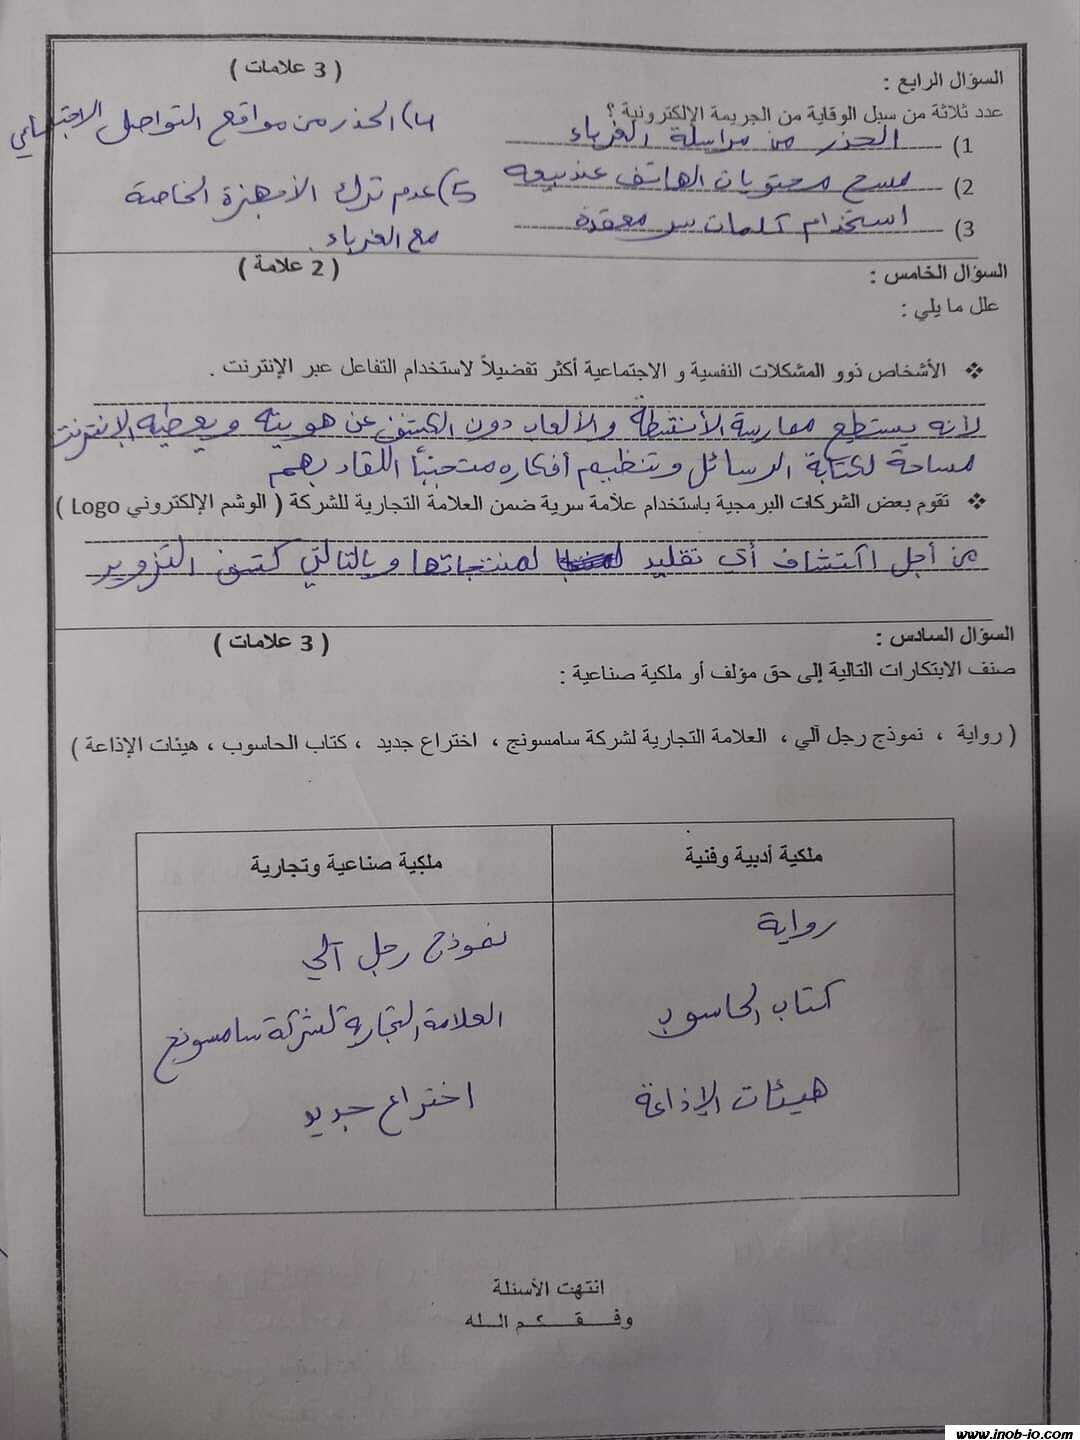 السؤال الرابع : ( 3 علامات )
عدد ثلاثة من سبل الوقاية من الجريمة الإلكترونية ؟
1) الحذر من مراسلة الغرباء
2) مسح محتويات الهاتف عند بيعه
3) استخدام كلمات سر معقدة
4) الحذر من مواقع التواصل الاجتماعي
5) عدم ترك الأجهزة الخاصة
مع الغرباء.
السؤال الخامس : ( 2 علامة )
علل ما يلي :
❖ الأشخاص ذوو المشكلات النفسية و الاجتماعية أكثر تفضيلاً لاستخدام التفاعل عبر الإنترنت .
لأنه يستطيع ممارسة الأنشطة والألعاب دون الكشف عن هويته ويعطيه الإنترنت
مساحة لكتابة الرسائل وتنظيم أفكاره متجنباً اللقاء بهم
❖ تقوم بعض الشركات البرمجية باستخدام علامة سرية ضمن العلامة التجارية للشركة ( الوشم الإلكتروني Logo )
من أجل اكتشاف أي تقليد لمنتجاتها وبالتالي كشف التزوير
السؤال السادس : ( 3 علامات )
صنف الابتكارات التالية إلى حق مؤلف أو ملكية صناعية :
( رواية ، نموذج رجل آلي ، العلامة التجارية لشركة سامسونج ، اختراع جديد ، كتاب الحاسوب ، هيئات الإذاعة )
ملكية أدبية وفنية
ملكية صناعية وتجارية
رواية
نموذج رجل آلي
كتاب الحاسوب
العلامة التجارية لشركة سامسونج
هيئات الإذاعة
اختراع جديد
انتهت الأسئلة
وفـــقـــكـــم الـلـه
www.inob-io.com